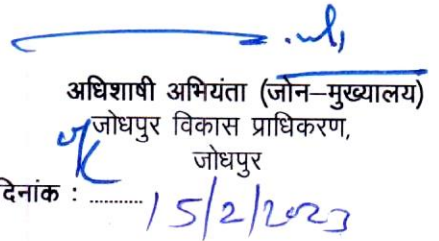 अधिशाषी अभियंता (जोन–मुख्यालय)
जोधपुर विकास प्राधिकरण,
जोधपुर
दिनांक : .......... 15/2/2023